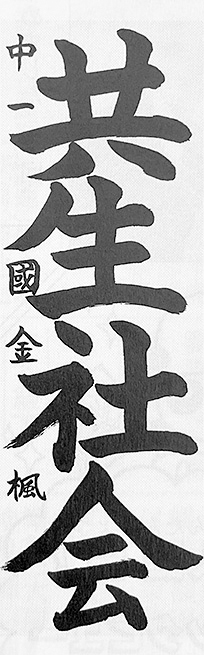 共生社会
中一 國金 楓